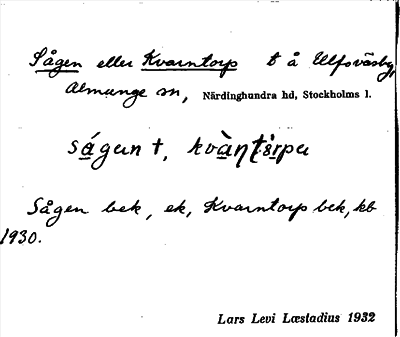 Sågen eller Kvarntorp t å Ulfsväsby,
Almunge sn, Närdinghundra hd, Stockholms l.
ságen t,
Sågen bek, ek, Kvarntorp bek, kb
1930.
Lars Levi Læstadius 1932